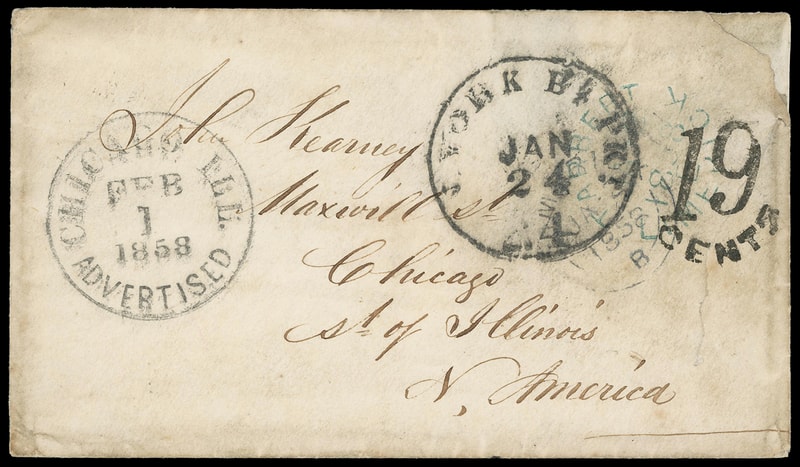 CHICAGO ILL.
FEB
1
1858
ADVERTISED
N. YORK Br PKT
JAN
24
4
1858
19
CENTS
John Kearney
Maxwill st
Chicago
st of Illinois
N, America